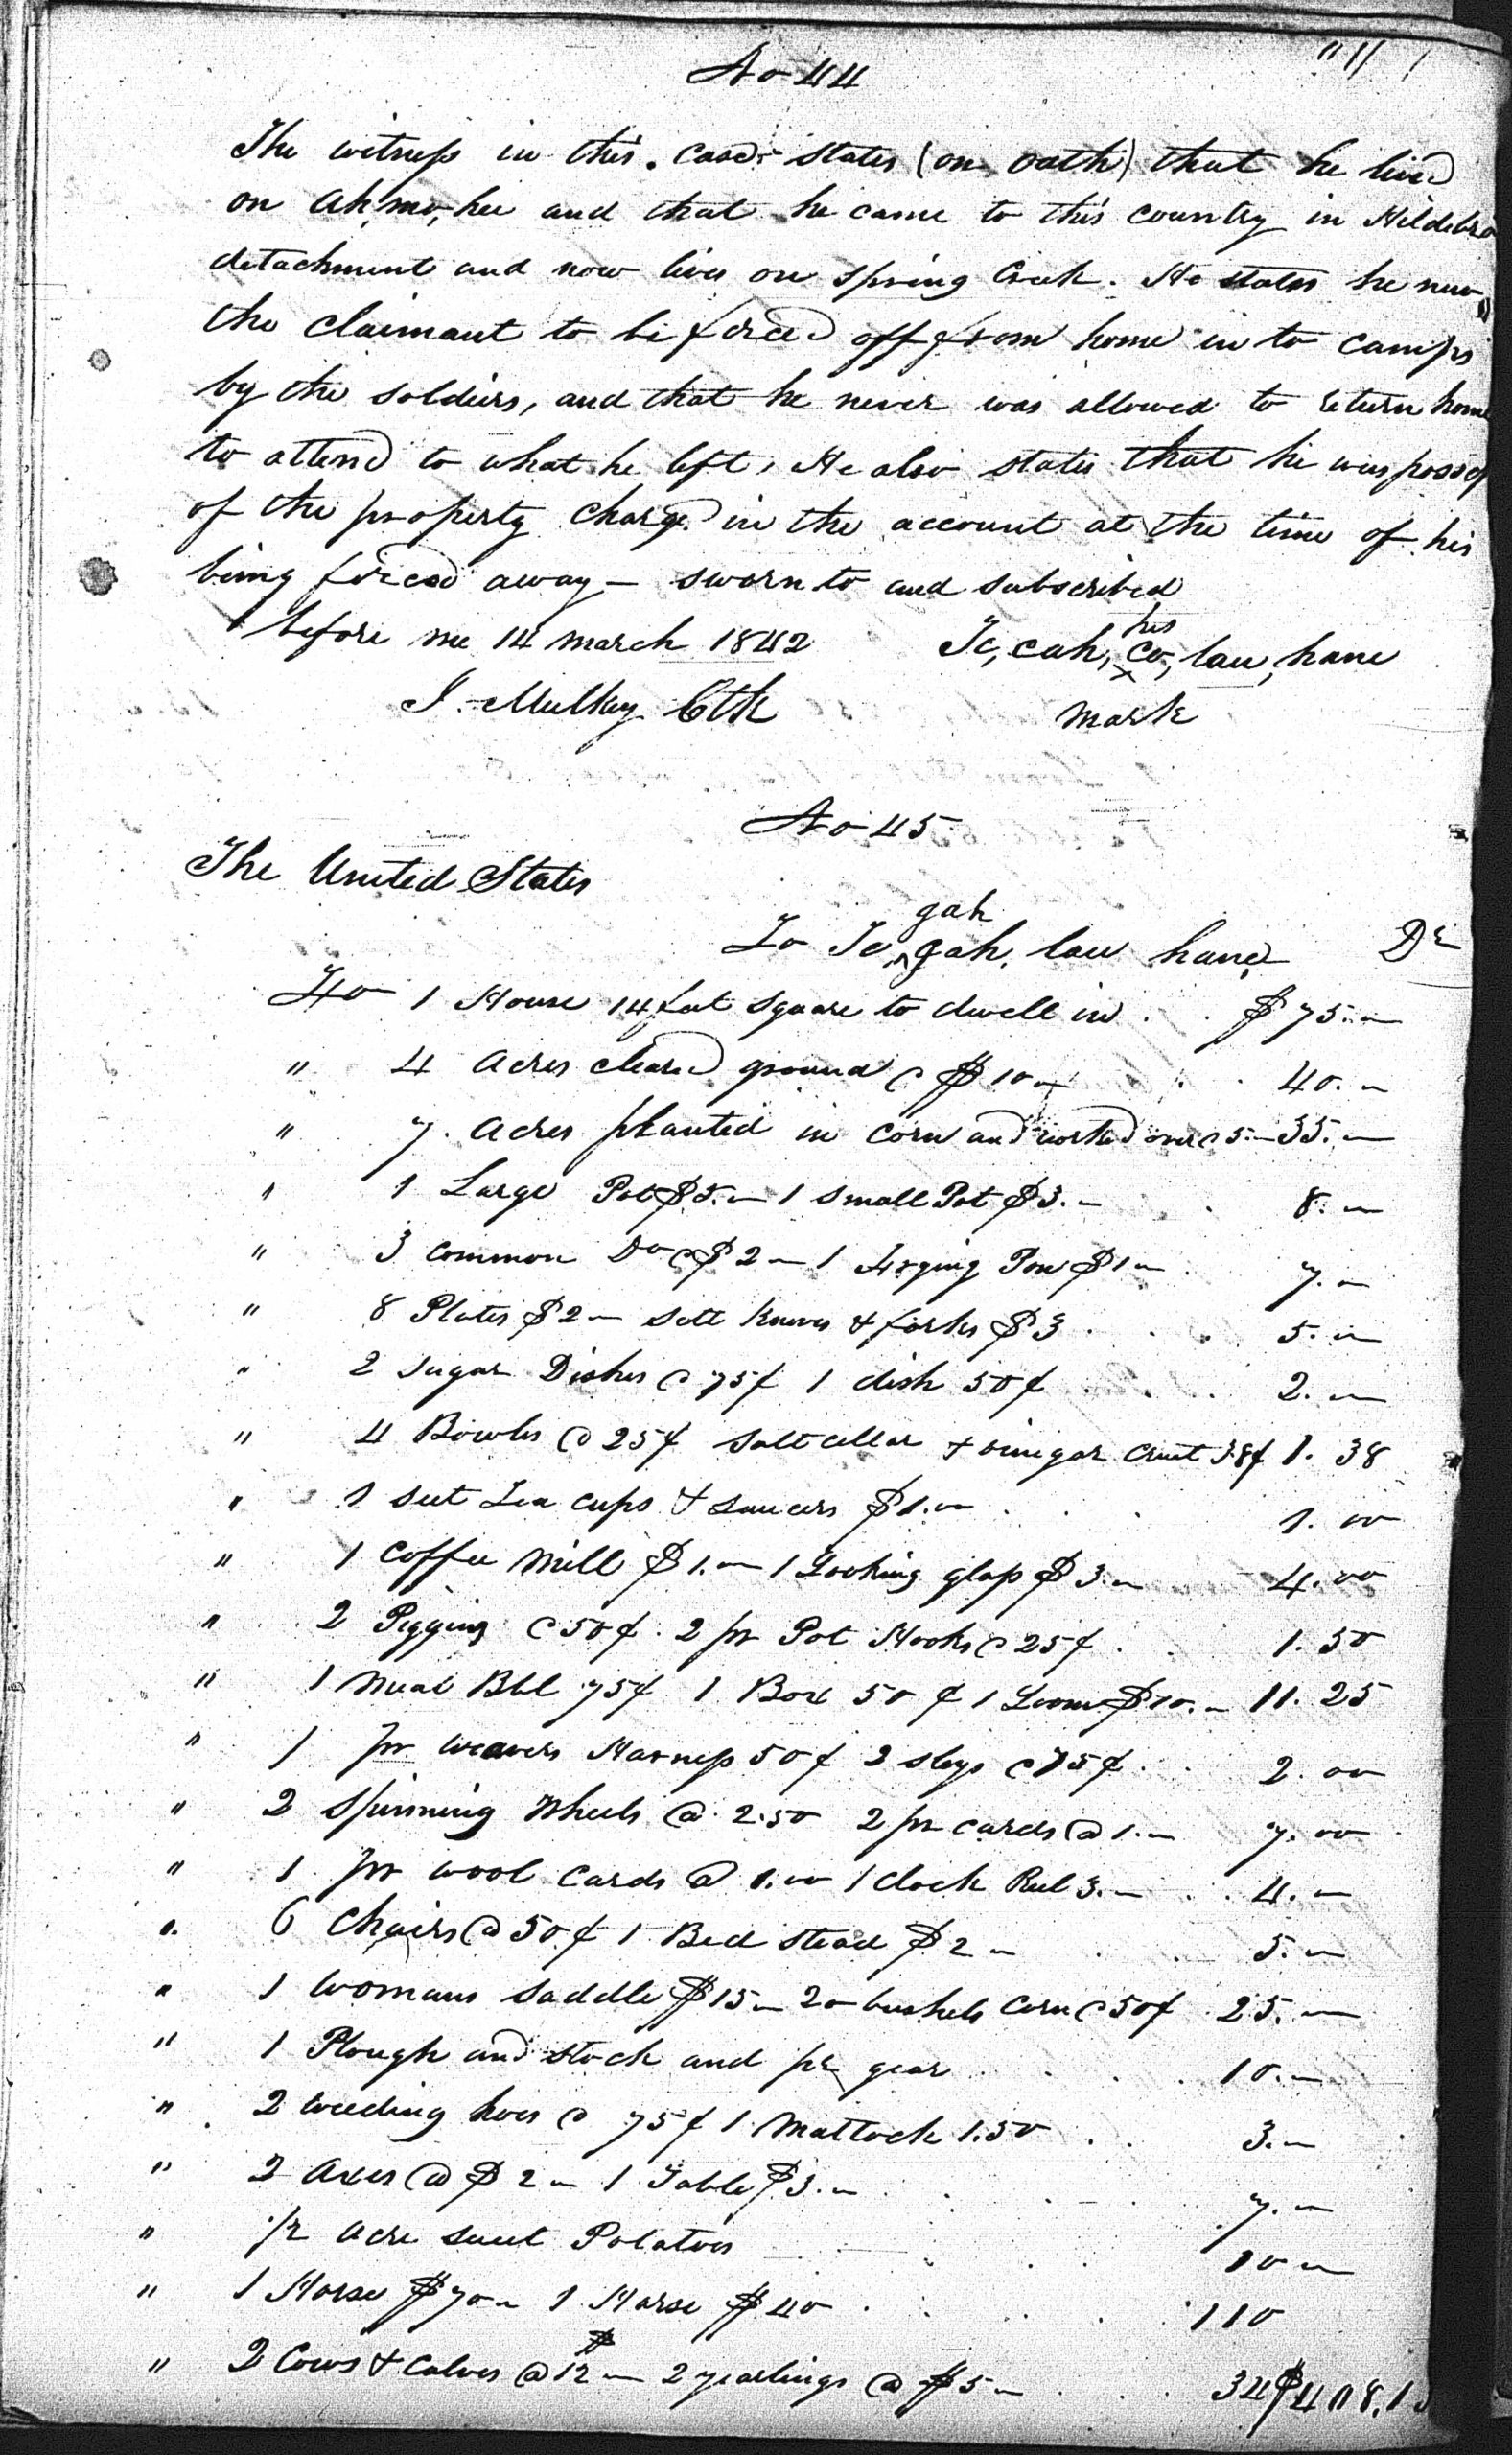 No 44
The witness in this case states (on oath) that he lived
on Ah,mo,hee and that he came to this country in Hildebra
detachment and now lives on Spring Creek. He states he new
the claimant to be forced off from home in to camps
by the soldiers, and that he never was allowed to return home
to attend to what he left, He also states that he was possess
of the property charged in the account at the time of his
being forced away – sworn to and subscribed
before me 14 march 1842
Te, cah, co, law, hane
his
x
mark
J. Mulkey Clk
No 45
The United States
To Te, gah gah, law hane Dr
To 1 House 14 feet square to dwell in . . $75.–
" 4 Acres cleared ground @ $10.– . . 40.–
" 7. Acres planted in corn and worked over @ 5.– 35.–
" 1 Large Pot $5.– 1 small Pot $3.– . 8.–
" 3 common Do @ $2 – 1 Frying Pan $1 – . 7.–
" 8 Plates $2 – sett knives & forks $3 . . . 5.–
" 2 sugar Dishes @ 75¢ 1 dish 50¢ . . . 2.–
" 4 Bowls @ 25¢ salt cellar & vinegar cruet 38¢ 1.38
" 1 sett Tea cups & saucers $1.– . . . 1.00
" 1 coffee mill $1.– 1 Looking glass $3.– 4.00
" 2 Piggins @ 50¢. 2 pr Pot Hooks @ 25¢ . 1.50
" 1 meal Bbl 75¢ 1 Box 50¢ 1 Loom $10.– 11.25
" 1 pr weavers Harness 50¢ 2 slays @ 75¢ . . 2.00
" 2 spinning Wheels @ 2.50 2 pr cards @ 1.– 7.00
" 1 pr wool cards @ 1.00 1 clock Reel 3.– . . 4.–
" 6 chairs @ 50¢ 1 Bed stead $2 – . . 5.–
" 1 womans saddle $15 – 20 bushels corn @ 50¢ . 25.–
" 1 Plough and stock and pr gear . . . . 10.–
" 2 weeding hoes @ 75¢ 1 mattock 1.50 . . 3.–
" 2 axes @ $2 – 1 Table $3.– . . . 7.–
" 1/2 acre sweet Potatoes . . . 10 –
" 1 Horse $70 – 1 Horse $40 . . . . 110
" 2 Cows & calves @ $12 – 2 yearlings @ $5 – . . . 34 $408.13